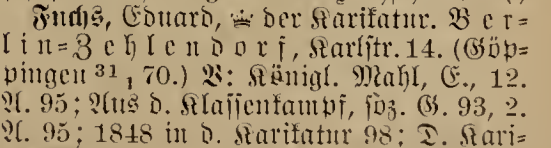 Fuchs, Eduard, der Karikatur. Ber-
lin-Zehlendorf, Karlstr. 14. (Göp-
pingen 31, 70.) V: Königl. Mahl, E., 12.
A. 95; Aus d. Klassenkampf, soz. G. 93, 2.
A. 95; 1848 in d. Karikatur 98; D. Kari-